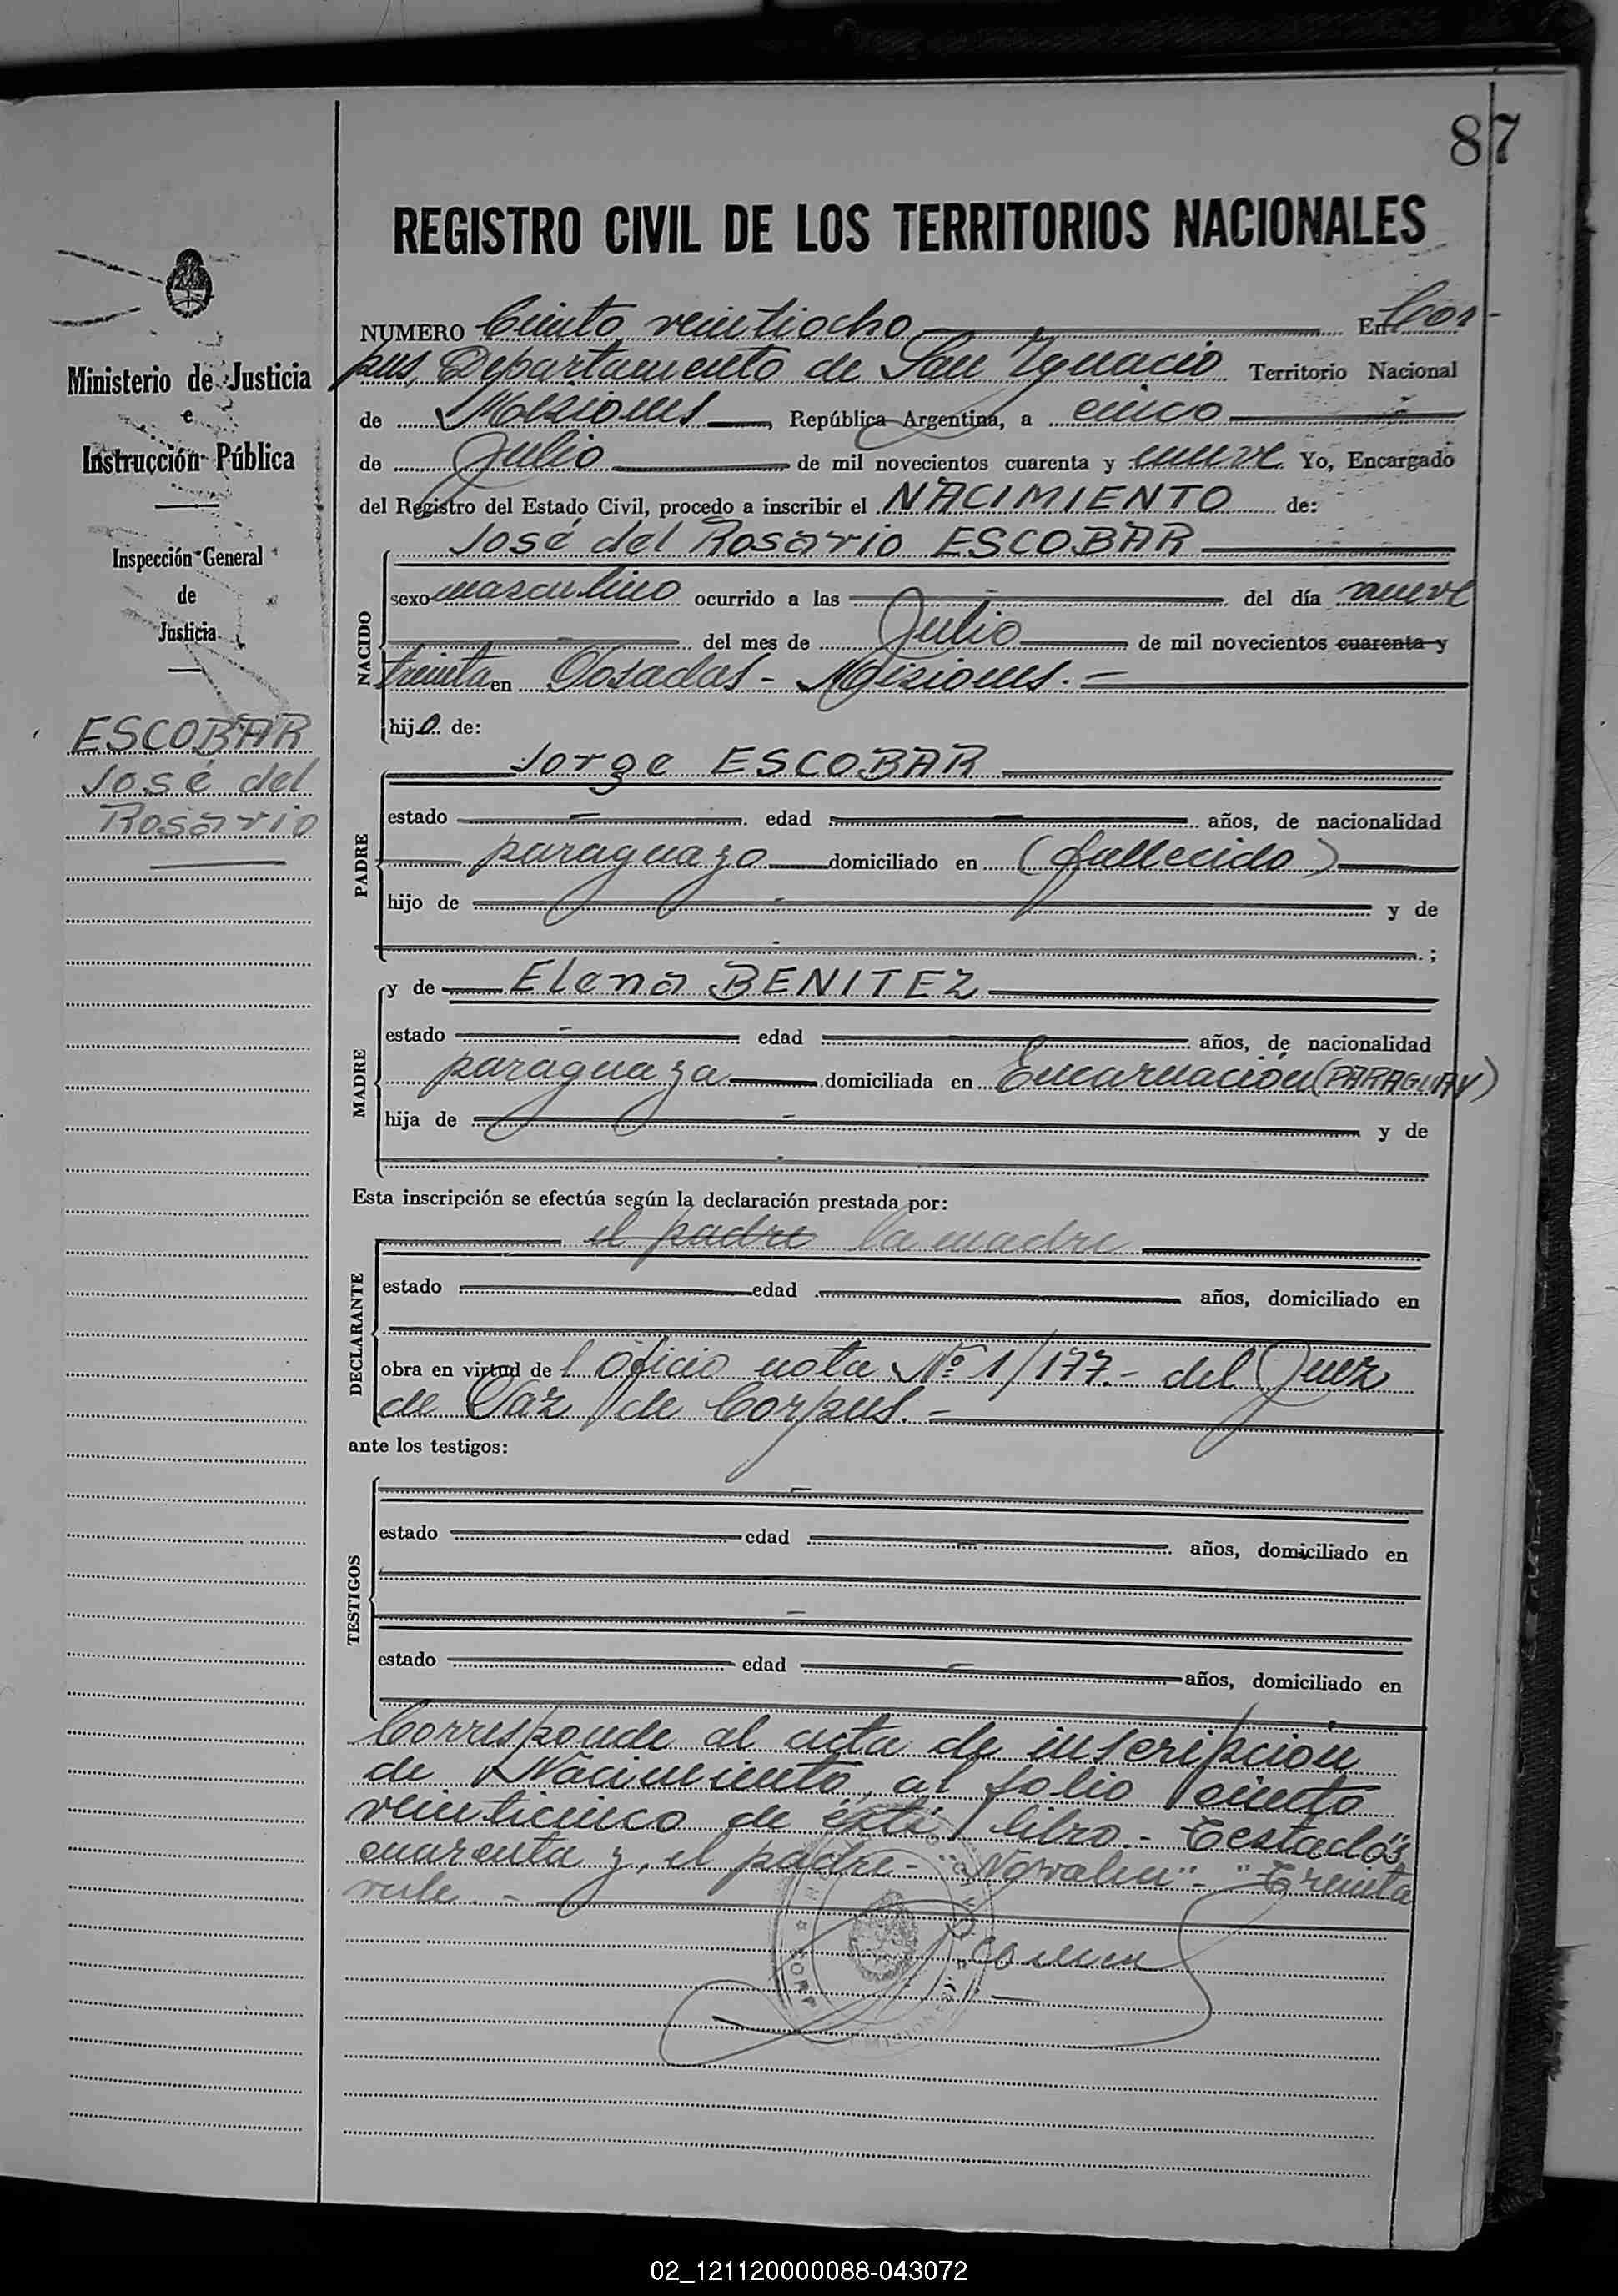 87
REGISTRO CIVIL DE LOS TERRITORIOS NACIONALES
Ministerio de Justicia
e
Instrucción Pública
Inspección General
de
Justicia
ESCOBAR
José del
Rosario
NUMERO Ciento veintiocho En Cor-
pus, Departamento de San Ignacio Territorio Nacional
de Misiones, República Argentina, a cinco
de Julio de mil novecientos cuarenta y nueve Yo, Encargado
del Registro del Estado Civil, procedo a inscribir el NACIMIENTO de:
José del Rosario ESCOBAR
NACIDO
sexo masculino ocurrido a las del día nueve
del mes de Julio de mil novecientos cuarenta y
treinta en Posadas - Misiones.-
hijo de:
Jorge ESCOBAR
PADRE
estado edad años, de nacionalidad
paraguayo domiciliado en (fallecido)
hijo de y de
;
y de Elena BENITEZ
MADRE
estado edad años, de nacionalidad
paraguaya domiciliada en Encarnación (PARAGUAY)
hija de y de
Esta inscripción se efectúa según la declaración prestada por:
el padre la madre
DECLARANTE
estado edad años, domiciliado en
obra en virtud del Oficio nota Nº 1/177.- del Juez
de Paz de Corpus.-
ante los testigos:
TESTIGOS
estado edad años, domiciliado en
estado edad años, domiciliado en
Corresponde al acta de inscripción
de Nacimiento al folio ciento
veinticinco de éste libro.- Testados
cuarenta y, el padre - "No valen" - "Treinta
vale.-
02_121120000088-043072